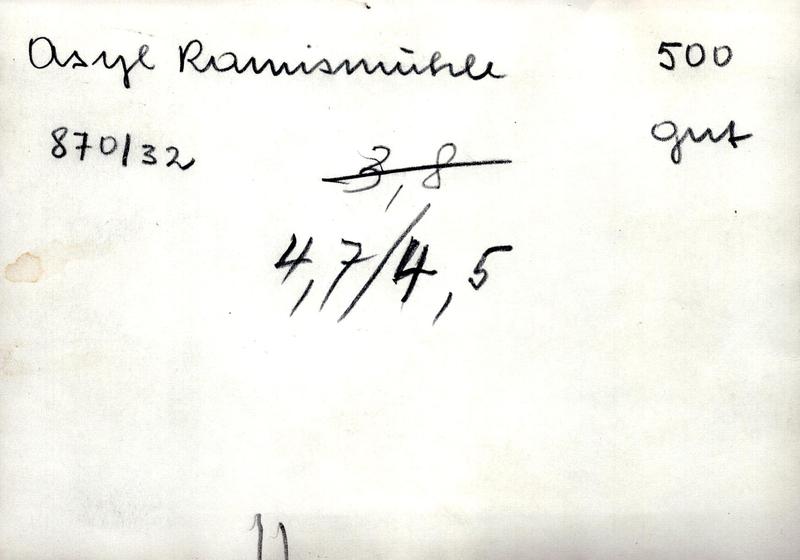 Asyl Ramismühle 500
870/32 gut
3,8
4,7/4,5